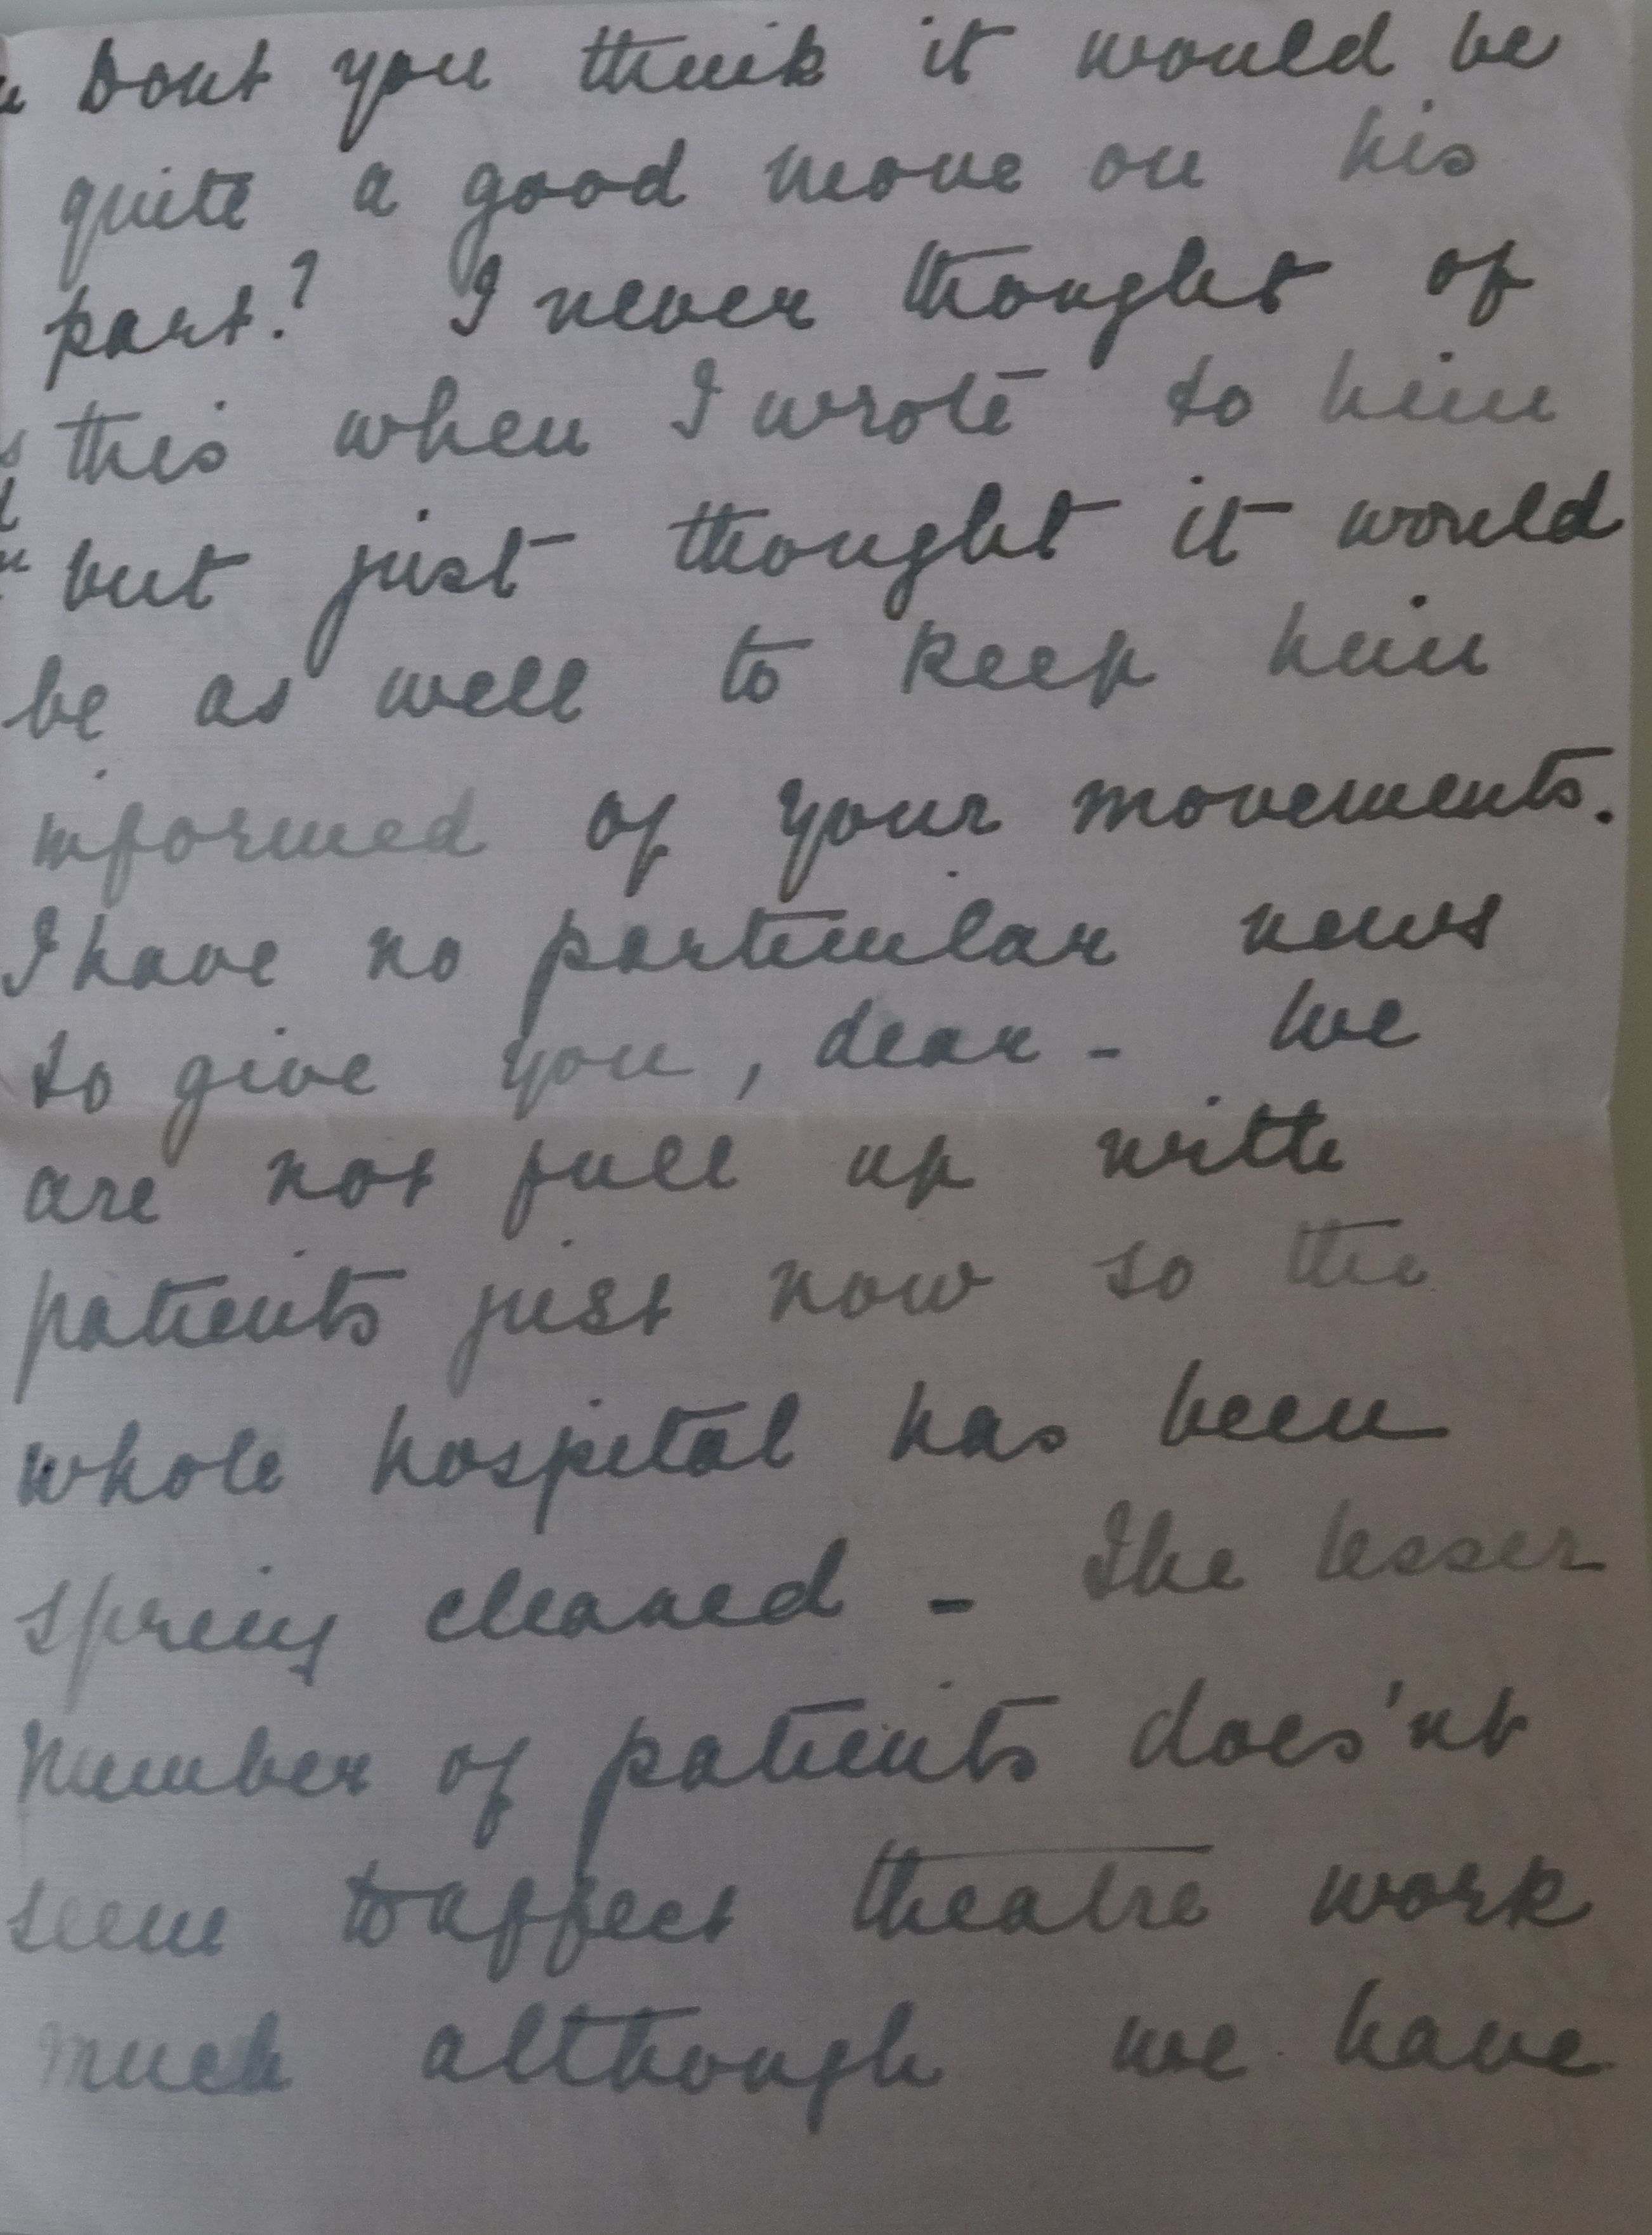 Dont you think it would be
quite a good move on his
part? I never thought of
this when I wrote to him
but just thought it would
be as well to keep him
informed of your movements.
I have no particular news
to give you, dear - We
are not full up with
patients just now so the
whole hospital has been
spring cleaned - The lesser
number of patients does'nt
seem to affect theatre work
much although we have